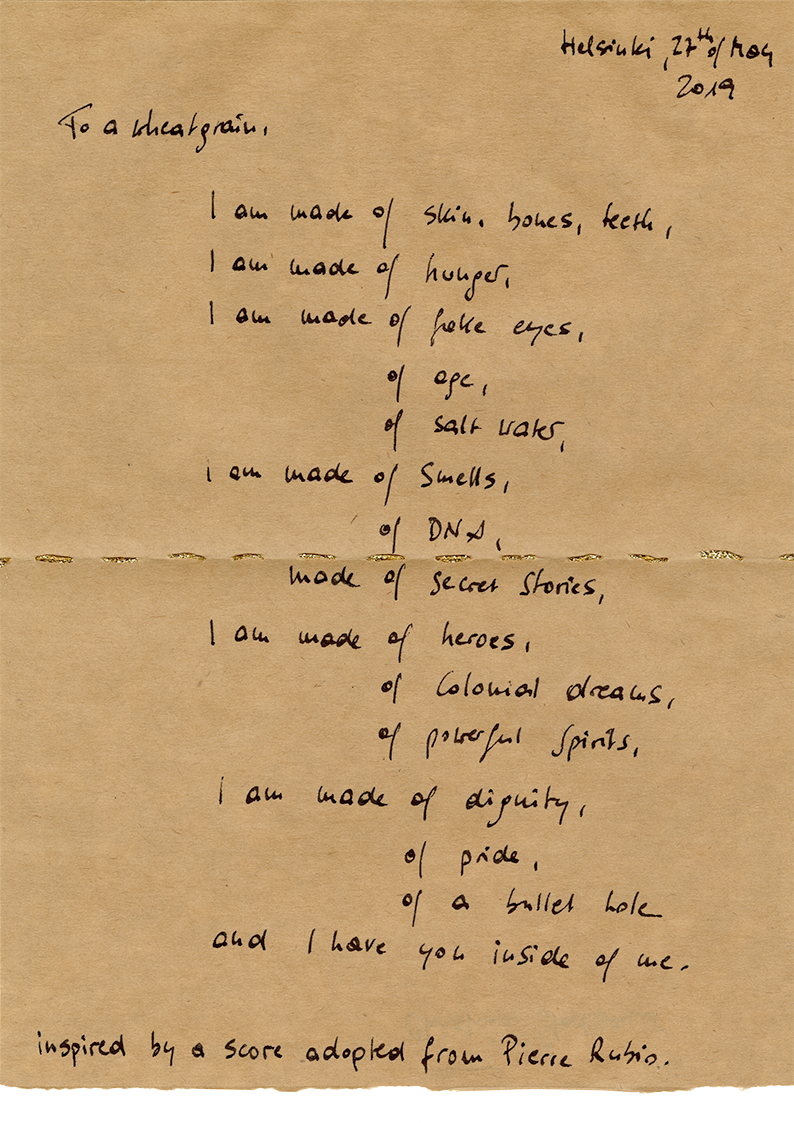 Helsinki, 27th of May
2019
To a wheatgrain,
I am made of skin, bones, teeth,
I am made of hunger,
I am made of fake eyes,
of age,
of salt water,
I am made of Smells,
of DNA,
made of secret stories,
I am made of heroes,
of Colonial dreams,
of powerful spirits,
I am made of dignity,
of pride,
of a bullet hole
and I have you inside of me.
inspired by a score adopted from Pierre Rubio.